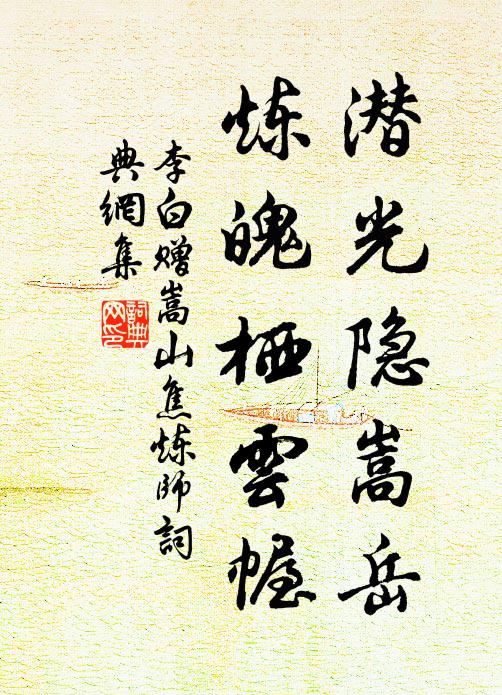 潜光隐嵩岳
炼魄栖雲幄
李白赠嵩山焦炼師詞
典網集
詞典
网印